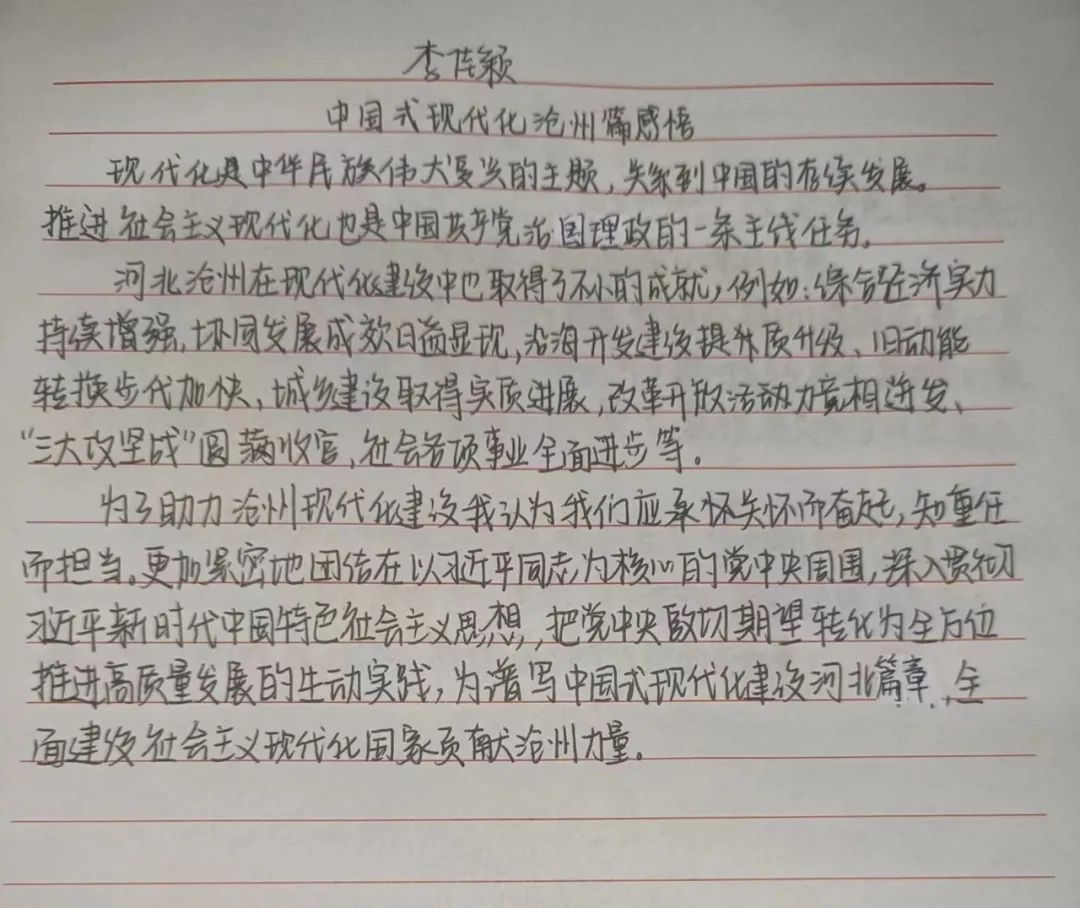 李佳颖
中国式现代化沧州篇感悟
现代化是中华民族伟大复兴的主题，关系到中国的存续发展。
推进社会主义现代化也是中国共产党治国理政的一条主线任务。
河北沧州在现代化建设中也取得了不小的成就，例如：综合经济实力
持续增强，协同发展成效日益显现，沿海开发建设提升质升级、旧动能
转换步代加快、城乡建设取得实质进展，改革开放活动力竞相迸发、
“三大攻坚战”圆满收官，社会各项事业全面进步等。
为了助力沧州现代化建设我认为我们应承怀关怀而奋起，知重任
而担当。更加紧密地团结在以习近平同志为核心的党中央周围，深入贯彻
习近平新时代中国特色社会主义思想，把党中央殷切期望转化为全方位
推进高质量发展的生动实践，为谱写中国式现代化建设河北篇章，全
面建设社会主义现代化国家贡献沧州力量。